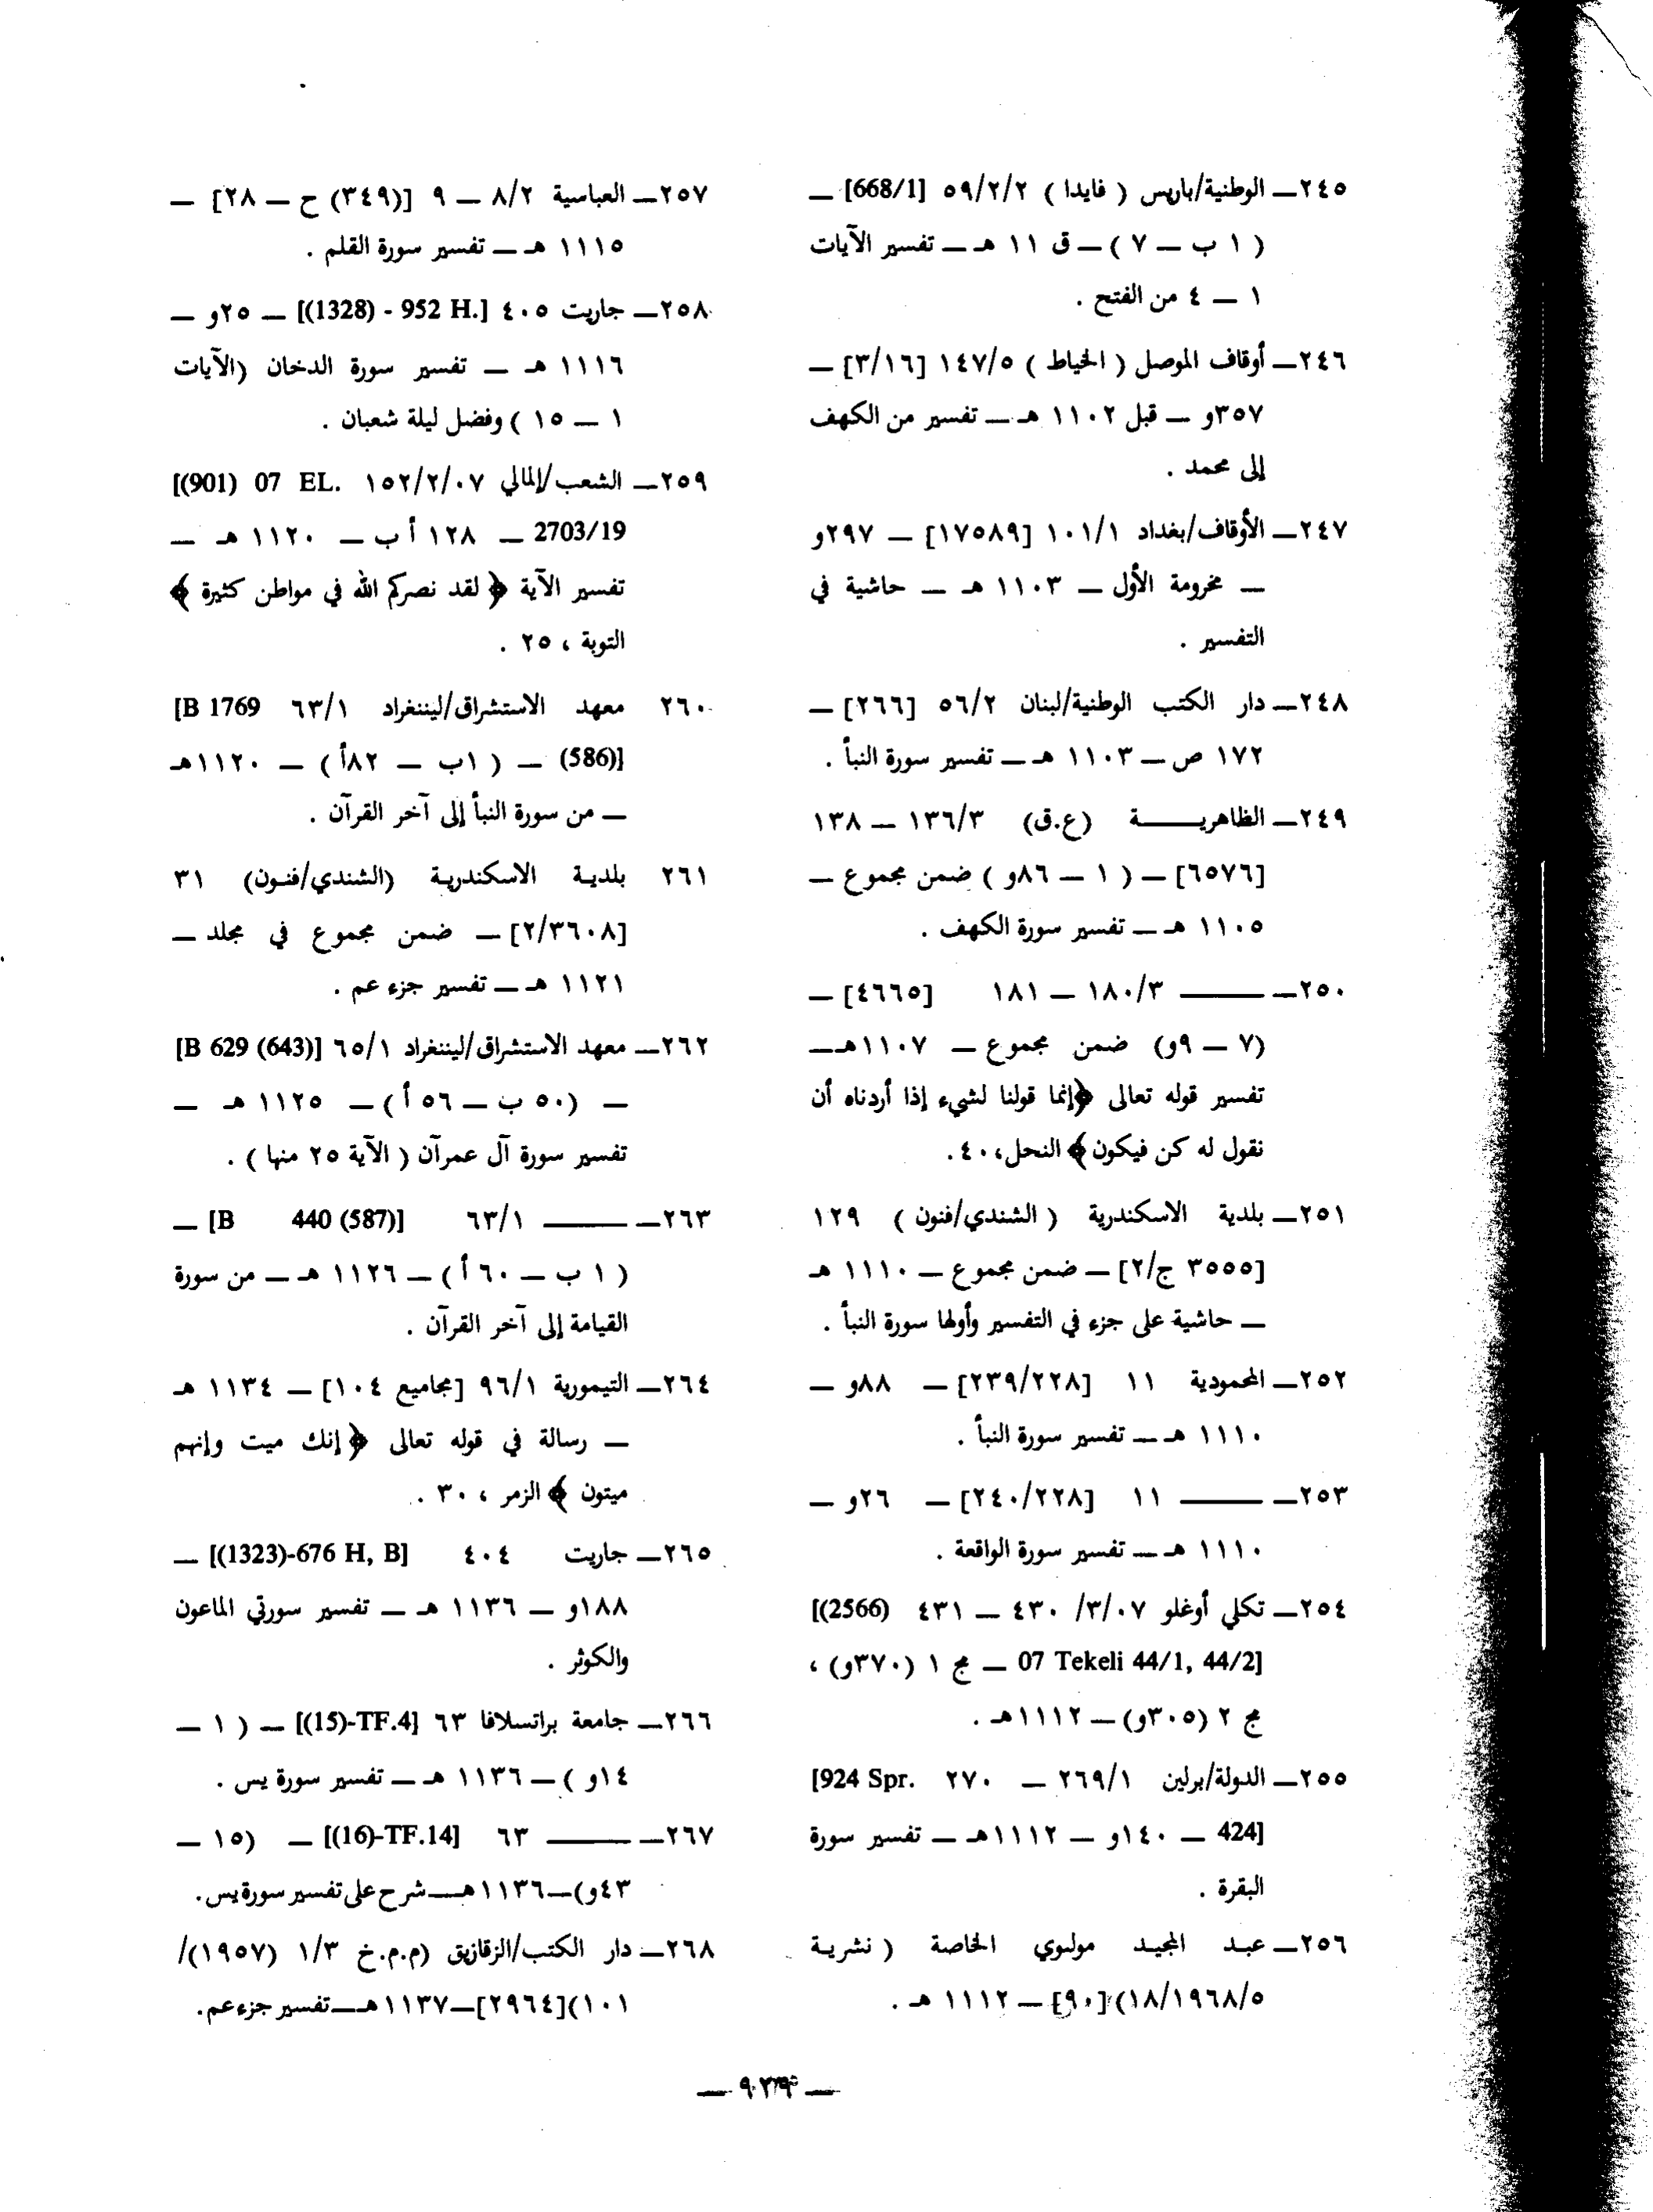 ٢٤٥ــ الوطنية/باريس ( فايدا ) ٥٩/٢/٢ [668/1] ــ
( ١ ب ــ ٧ ) ــ ق ١١ هـ ــ تفسير الآيات
١ ــ ٤ من الفتح .
٢٤٦ــ أوقاف الموصل ( الخياط ) ١٤٧/٥ [٣/١٦] ــ
٣٥٧و ــ قبل ١١٠٢ هـ ــ تفسير من الكهف
إلى محمد .
٢٤٧ــ الأوقاف/بغداد ١٠١/١ [١٧٥٨٩] ــ ٢٩٧و
ــ مخرومة الأول ــ ١١٠٣ هـ ــ حاشية في
التفسير .
٢٤٨ــ دار الكتب الوطنية/لبنان ٥٦/٢ [٢٦٦] ــ
١٧٢ ص ــ ١١٠٣ هـ ــ تفسير سورة النبأ .
٢٤٩ــ الظاهريــــة (ع.ق) ١٣٦/٣ ــ ١٣٨
[٦٥٧٦] ــ ( ١ ــ ٨٦و ) ضمن مجموع ــ
١١٠٥ هـ ــ تفسير سورة الكهف .
٢٥٠ــ ــــــ ١٨٠/٣ ــ ١٨١ [٤٦٦٥] ــ
(٧ ــ ٩و) ضمن مجموع ــ ١١٠٧هــــ
تفسير قوله تعالى ﴿إنما قولنا لشيء إذا أردناه أن
نقول له كن فيكون﴾ النحل، ٤٠.
٢٥١ــ بلدية الاسكندرية ( الشندي/فنون ) ١٢٩
[٣٥٥٥ ج/٢] ــ ضمن مجموع ــ ١١١٠ هـ
ــ حاشية على جزء في التفسير وأولها سورة النبأ .
٢٥٢ــ المحمودية ١١ [٢٣٩/٢٢٨] ــ ٨٨و ــ
١١١٠ هـ ــ تفسير سورة النبأ .
٢٥٣ــ ــــــ ١١ [٢٤٠/٢٢٨] ــ ٢٦و ــ
١١١٠ هـ ــ تفسير سورة الواقعة .
٢٥٤ــ تكلي أوغلو ٠٧/٣/ ٤٣٠ ــ ٤٣١ (2566)]
07 Tekeli 44/1, 44/2] ــ مج ١ (٣٧٠و) ،
مج ٢ (٣٠٥و) ــ ١١١٢هـ .
٢٥٥ــ الدولة/برلين ٢٦٩/١ ــ ٢٧٠ [924 Spr.
424] ــ ١٤٠و ــ ١١١٢هـ ــ تفسير سورة
البقرة .
٢٥٦ــ عبد المجيد مولوي الخاصة ( نشرية
١٨/١٩٦٨/٥)[٩٠] ــ ١١١٢ هـ .
٢٥٧ــ العباسية ٨/٢ ــ ٩ [(٣٤٩) ح ــ ٢٨] ــ
١١١٥ هـ ــ تفسير سورة القلم .
٢٥٨ــ جاريت ٤٠٥ [(1328) - 952 H.] ــ ٢٥و ــ
١١١٦ هـ ــ تفسير سورة الدخان (الآيات
١ ــ ١٥ ) وفضل ليلة شعبان .
٢٥٩ــ الشعب/إلمالي ١٥٢/٢/٠٧ [(901) 07 EL.
2703/19 ــ ١٢٨ أ ب ــ ١١٢٠ هـ ــ
تفسير الآية ﴿ لقد نصركم الله في مواطن كثيرة ﴾
التوبة ، ٢٥ .
٢٦٠ معهد الاستشراق/ليننغراد ٦٣/١ [B 1769
(586)] ــ ( ١ب ــ ٨٢أ ) ــ ١١٢٠هـ
ــ من سورة النبأ إلى آخر القرآن .
٢٦١ بلدية الاسكندرية (الشندي/فنون) ٣١
[٢/٣٦٠٨] ــ ضمن مجموع في مجلد ــ
١١٢١ هـ ــ تفسير جزء عم .
٢٦٢ــ معهد الاستشراق/ليننغراد ٦٥/١ [B 629 (643)]
ــ (٥٠ ب ــ ٥٦ أ ) ــ ١١٢٥ هـ ــ
تفسير سورة آل عمرآن ( الآية ٢٥ منها ) .
٢٦٣ــ ــــــ ٦٣/١ [B 440 (587)] ــ
( ١ ب ــ ٦٠ أ ) ــ ١١٢٦ هـ ــ من سورة
القيامة إلى آخر القرآن .
٢٦٤ــ التيمورية ٩٦/١ [مجاميع ١٠٤] ــ ١١٣٤ هـ
ــ رسالة في قوله تعالى ﴿ إنك ميت وإنهم
ميتون ﴾ الزمر ، ٣٠ .
٢٦٥ــ جاريت ٤٠٤ [(1323)-676 H, B] ــ
١٨٨و ــ ١١٣٦ هـ ــ تفسير سورتي الماعون
والكوثر .
٢٦٦ــ جامعة براتسلافا ٦٣ [(15)-TF.4] ــ ( ١ ــ
١٤و ) ــ ١١٣٦ هـ ــ تفسير سورة يس .
٢٦٧ــ ــــــ ٦٣ [(16)-TF.14] ــ (١٥ ــ
٤٣و)ــ١١٣٦هــــشرح على تفسير سورة يس.
٢٦٨ــ دار الكتب/الزقازيق (م.م.خ ١/٣ (١٩٥٧)/
١٠١)[٢٩٦٤]ــ١١٣٧هــــتفسير جزء عم.